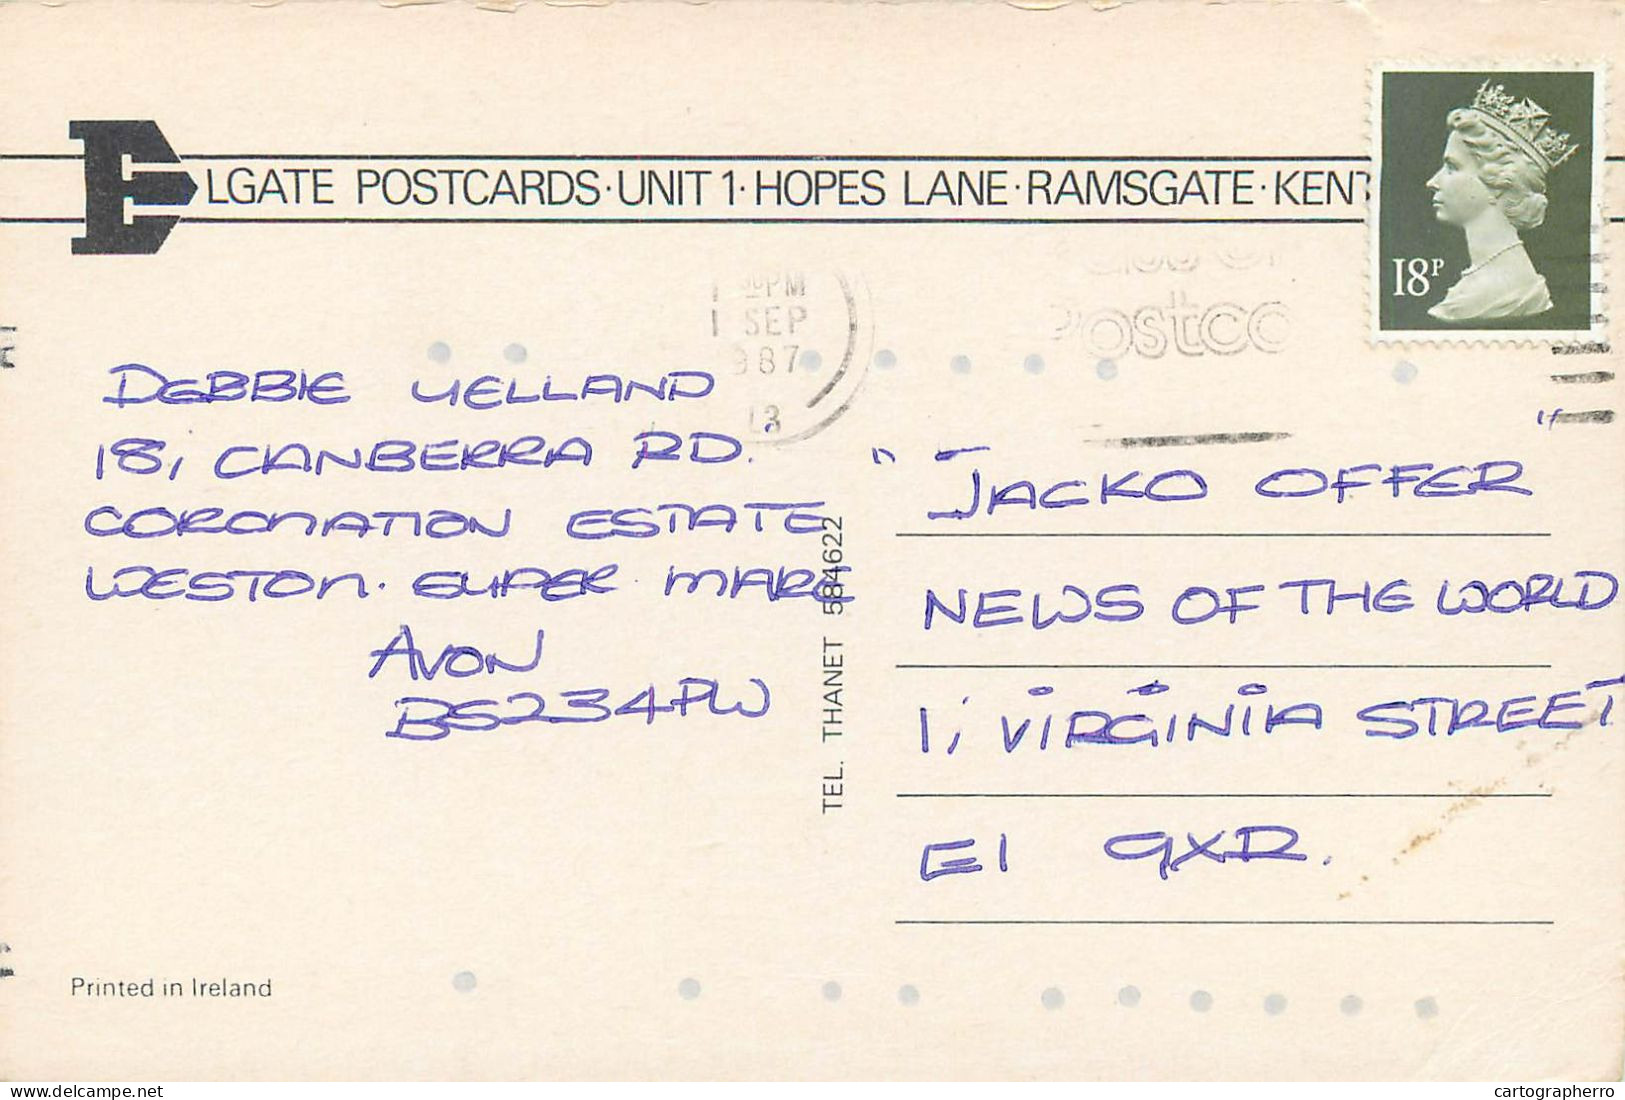 ELGATE POSTCARDS·UNIT 1·HOPES LANE·RAMSGATE·KENT
18P
PM
1 SEP
987
13
Postco
DEBBIE YELLAND
18, CANBERRA RD.
CORONATION ESTATE
WESTON. SUPER. MARE
AVON
BS234PW
TEL. THANET 584622
"JACKO OFFER"
NEWS OF THE WORLD
1, VIRGINIA STREET
E1 9XR.
Printed in Ireland
delcampe.net
cartographerro